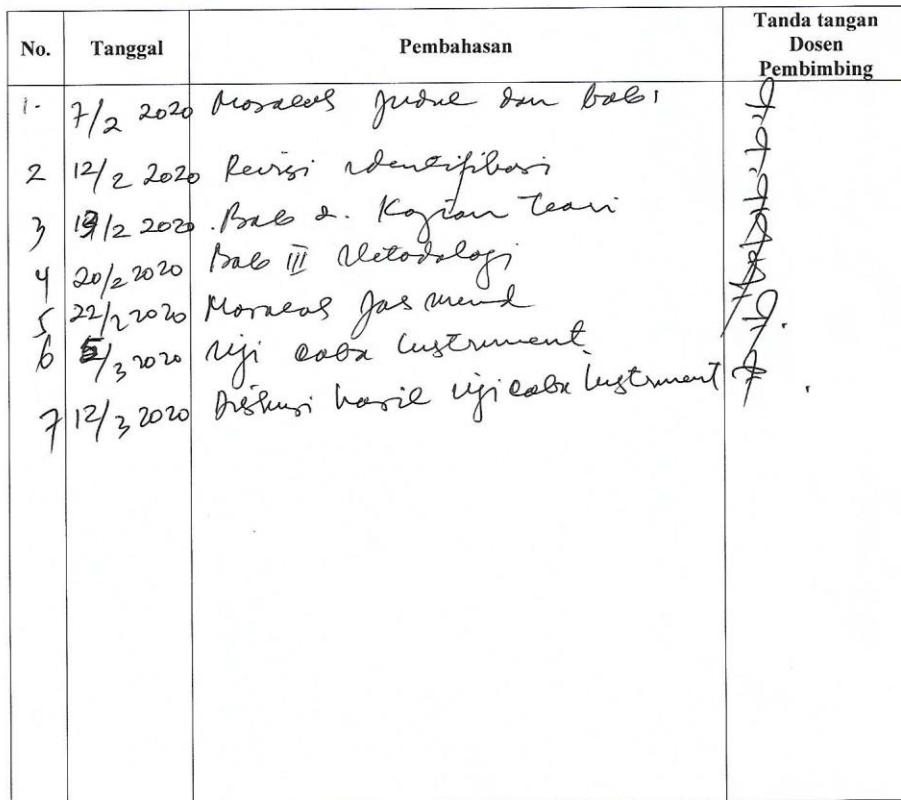 No. Tanggal Pembahasan Tanda tangan
Dosen
Pembimbing
1. 7/2 2020 judul dan bab 1
2 12/2 2020 Revisi identifikasi
3 19/2 2020 Bab 2. Kajian Teori
4 20/2 2020 Bab III Metodologi
5 22/2 2020
6 5/3 2020 uji coba Instrument
7 12/3 2020 Diskusi hasil uji coba Instrument